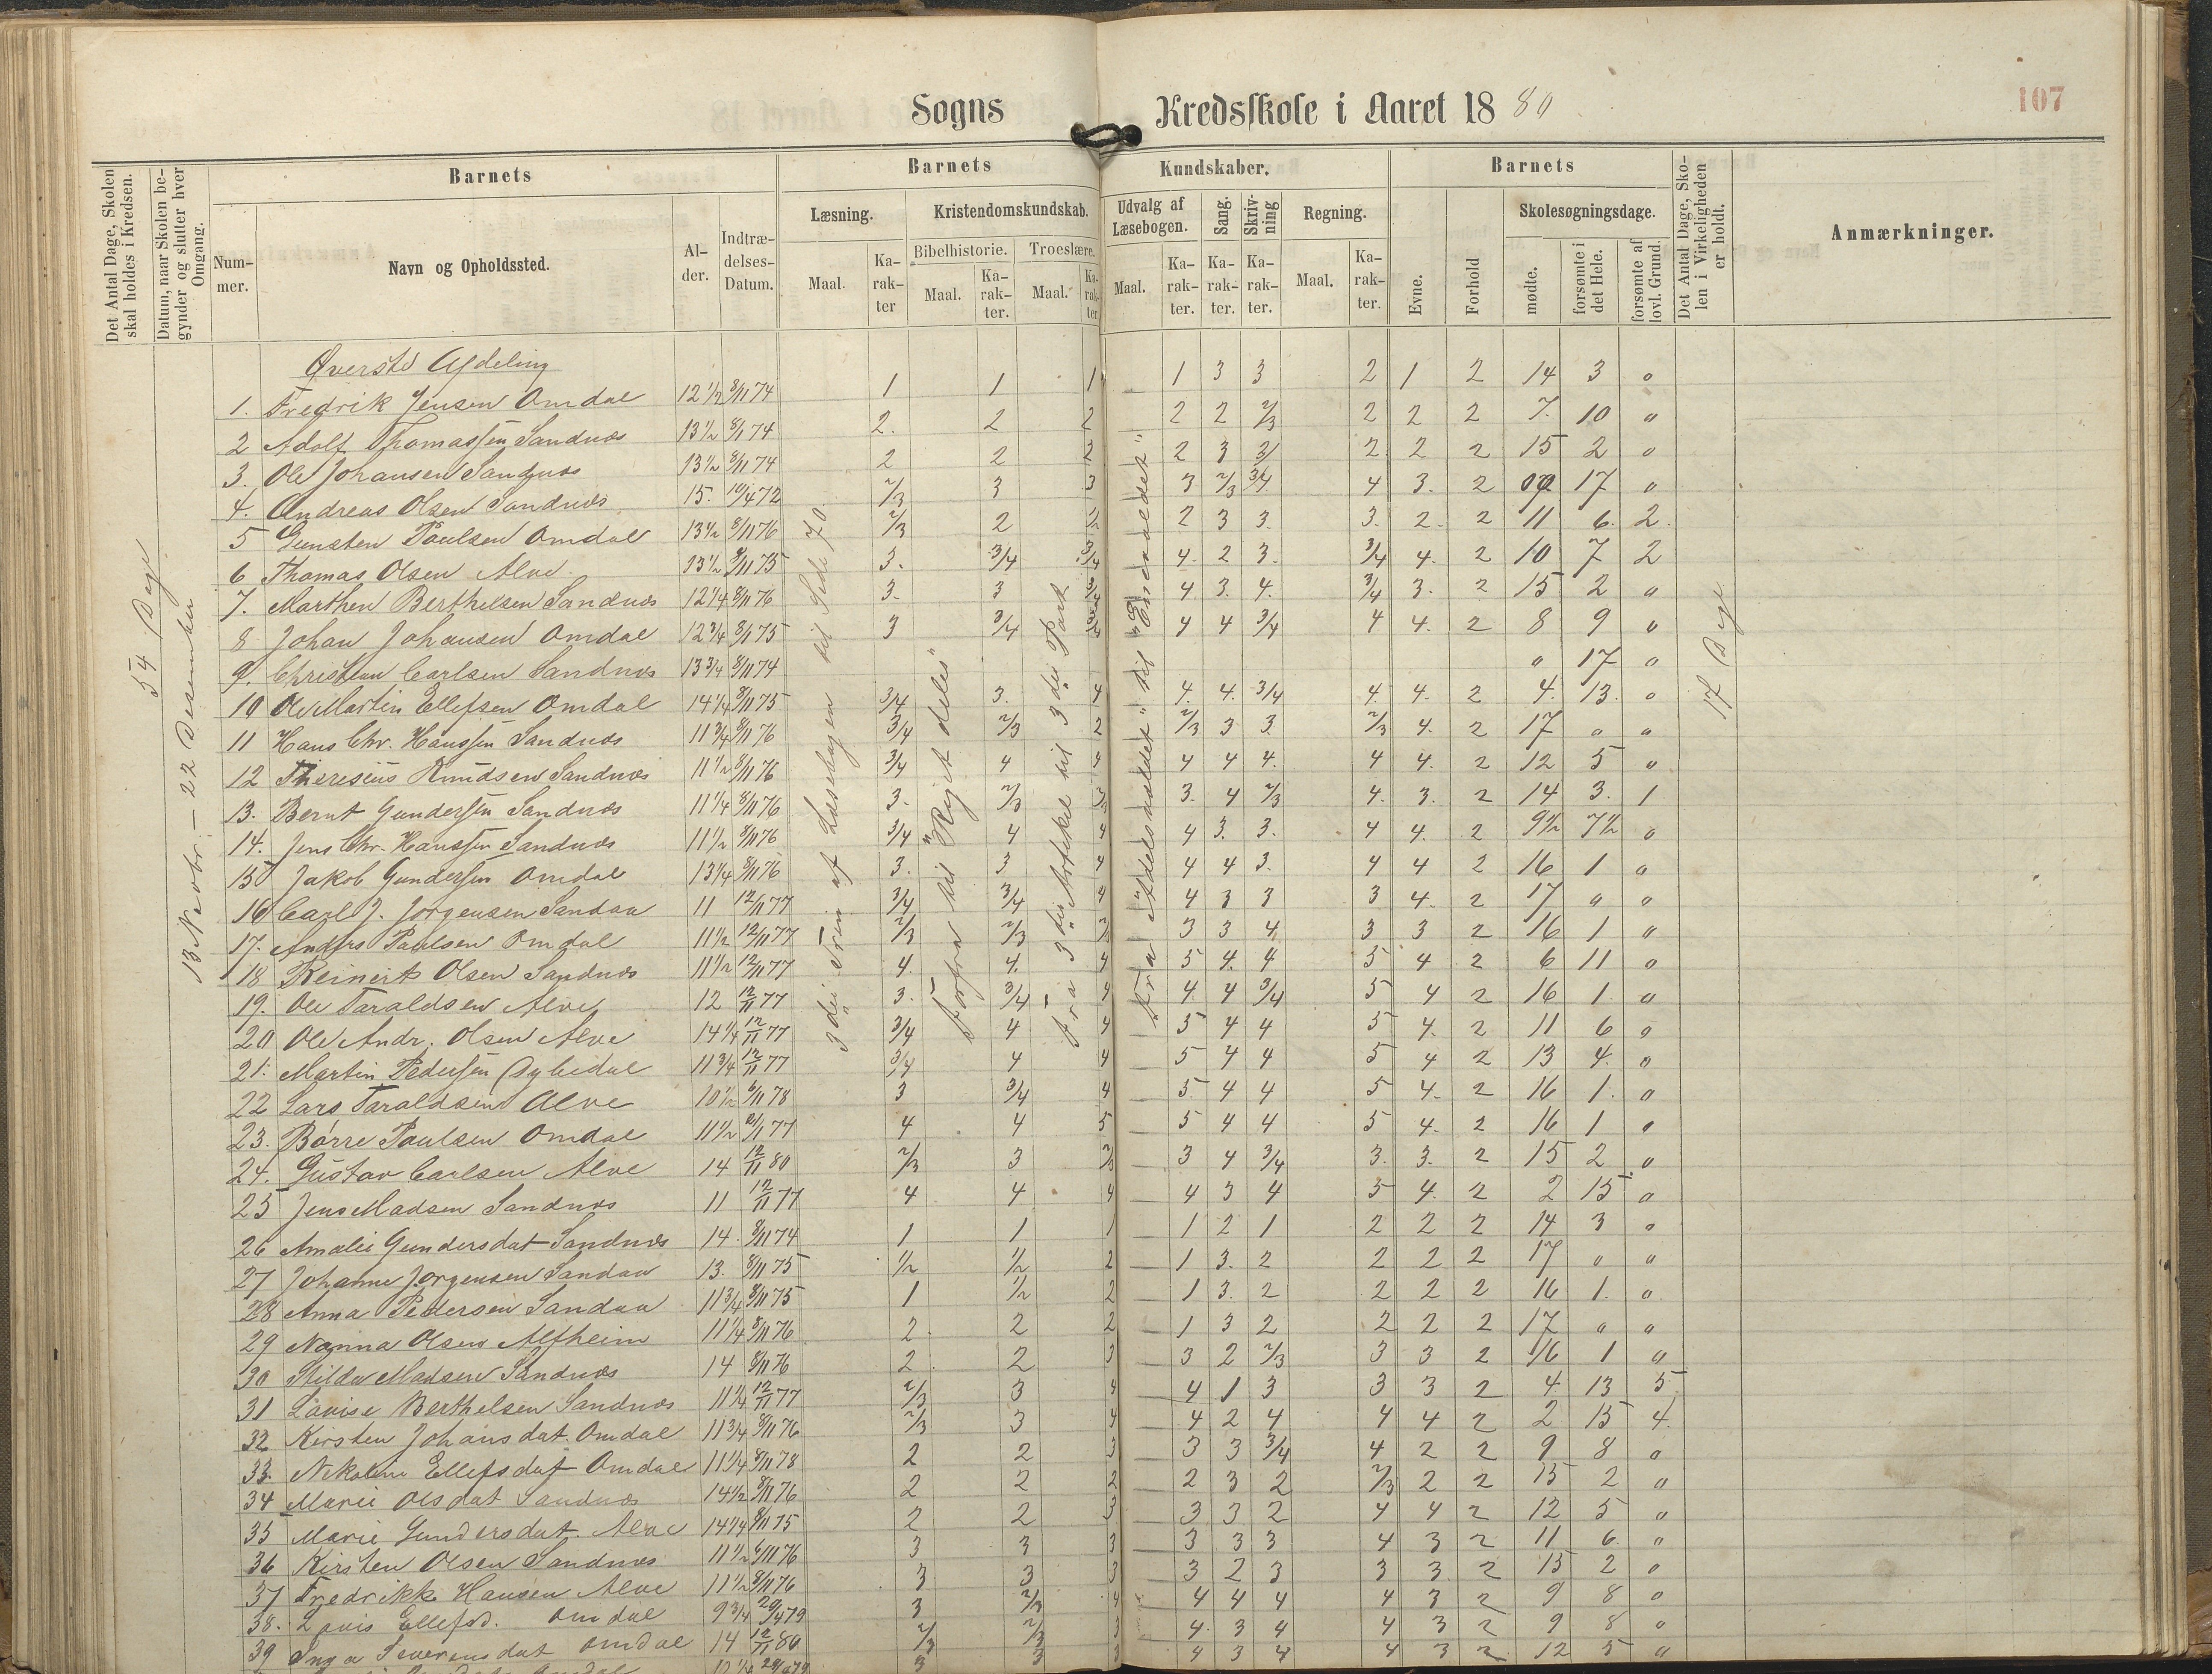 Sogns Kredsskole i Aaret 1880
107
Det Antal Dage, Skolen skal holdes i Kredsen.
Datum, naar Skolen begynder og slutter hver Omgang.
Barnets
Barnets Kundskaber.
Barnets
Det Antal Dage, Skolen i Virkeligheden er holdt.
Anmærkninger.
Nummer.
Navn og Opholdssted.
Alder.
Indtrædelses-Datum.
Læsning.
Kristendomskundskab.
Udvalg af Læsebogen.
Sang.
Skrivning
Regning.
Evne.
Forhold
Skolesøgningsdage.
Maal.
Karakter
Bibelhistorie.
Troeslære.
Maal. Karakter. Maal. Karakter.
Maal. Karakter. Karakter. Karakter. Maal. Karakter.
mødte.
forsømte i det Hele.
forsømte af lovl. Grund.
54 Dage
13 Novbr. – 22 Desember
17 Dage
3die Trin af Læsebogen til Side 70.
Forfra til "Riget deles"
Fra 3die Artikel til 3die Part
Øverste Afdeling
1. Fredrik Jensen Omdal 12 1/2 8/11 74 1 1 1 1 3 3 2 1 2 14 3 "
2 Adolf Thomassen Sandnæs 13 1/2 8/1 74 2. 2 2 2 2 2/3 2 2 2 7. 10 "
3. Ole Johansen Sandnæs 13 1/2 8/11 74 2 2 2 2 3 3/ 2 2 2 15 2 "
4. Andreas Olsen Sandnæs 15. 10/4 72 2/3 3 3 3 2/3 3/4 4 3. 2 17 "
5 Gunsten Paulsen Omdal 13 1/2 8/11 76 2/3 2 1/2 2 3 3. 3. 2. 2 11 6. 2.
6 Thomas Olsen Alve. 13 1/2 8/11 75 3. 3/4 3/4 4. 2 3. 3/4 4. 2 10 7 2
7. Marthen Berthelsen Sandnæs 12 1/4 8/11 76 3. 3 4 3. 4. 3/4 3. 2 15 2 "
8 Johan Johansen Omdal 12 3/4 8/1 75 3 3/4 3/4 4 4 3/4 4 4. 2 8 9 "
9. Christian Carlsen Sandnæs 13 3/4 8/11 74 " 17 "
10 Ole Martin Ellefsen Omdal 14 1/4 8/11 75 3/4 3. 4 4. 4. 3/4 4. 4. 2 4. 13. "
11 Hans Chr. Hanssen Sandnæs 11 3/4 8/11 76 3/4 2/3 2 2/3 3 3. 2/3 4. 2 17 " "
12 Theresius Knudsen Sandnæs 11 1/2 8/11 76 3/4 4 4 4 4 4. 4 4. 2 12 5 "
13. Bernt Gundersen Sandnæs 11 1/4 8/11 76 3. 2/3 2/3 3. 4 2/3 4. 3. 2 14 3. 1
14. Jens Chr. Hanssen Sandnæs 11 1/2 8/11 76 3/4 4 4 4 3. 3. 4 4. 2 9 1/2 7 1/2 "
15 Jakob Gundersen Omdal 13 1/4 8/11 76 3. 3 4 4 4 3. 4 4 2 16 1 "
16 Carl J. Jørgensen Sandaa 11 12/11 77 3/4 3/4 4 4 3 3 3 4. 2 17 " "
17. Anders Paulsen Omdal 11 1/2 12/11 77 2/3 2/3 3 3 4 3 3 2 16 1 "
18 Reinert Olsen Sandnæs 11 1/2 12/11 77 4. 4. 4 5 4. 4 5 4 2 6 11 "
19. Ole Taraldsen Alve 12 12/11 77 3. 3/4 4 4. 4 3/4 5 4 2 16 1. "
20 Ole Andr. Olsen Alve 14 1/4 12/11 77 3/4 4 4 5 4 4 5 4. 2 11 6 "
21. Martin Pedersen 11 3/4 12/11 77 3/4 4 4 5 4 4 5 4 2 13 4. "
22 Lars Taraldsen Alve 10 1/2 6/11 78 3 3/4 4 5. 4 4 5 4. 2 16 1. "
23. Børre Paulsen Omdal 11 1/2 77 4 4 5 5 4 4 5 4. 2 16 1 "
24. Gustav Carlsen Alve 14 12/11 80 2/3 3 2/3 3 4 3/4 3. 3. 2 15 2 "
25 Jens Madsen Sandnæs 11 12/11 77 4 4 4 4 3 4 5 4. 2 2 15 "
26 Amalie Gundersdat Sandnæs 14. 8/11 74 1 1 1 1 2 1 2 2 2 14 3 "
27 Johanne Jørgensen Sandaa 13. 8/11 75 1/2 1/2 2 1 3. 2 2 2 2 17 " "
28 Anna Pedersen Sandaa 11 3/4 8/11 75 1 1/2 2 1 3. 2 2 2 2 16 1. "
29 Nanna Olsen Alfheim 11 1/4 8/11 76 2. 2 2 1 3 2 2 2 2 17 " "
30 Hilda Madsen Sandnæs 14 8/11 76 2. 2 3 3 2 2/3 3 3 2 16 1 "
31 Lovise Berthelsen Sandnæs 11 1/4 12/11 77 2/3 3 4 4 1 3 3 3 2 4. 13 5
32 Kirsten Johansdat. Omdal 11 3/4 8/11 76 2/3 3 4 4 2 4 4 4 2 2 15 4.
33. Nikoline Ellefsdat Omdal 11 1/4 8/11 78 2 2 3 3 3 3/4 4 2 2 9 8 "
34 Marie Olsdat Sandnæs 14 1/2 8/11 76 2 2 2 2 3 2 2/3 2 2 15 2 "
35 Marie Gundersdat. Alve 14 1/4 8/11 75 2 2 3 3 3 2 4 4 2 12 5 "
36 Kirsten Olsen Sandnæs 11 1/2 6/11 76 3 3 3 3 3 3 4 3 2 11 6. "
37 Fredrikke Hansen Alve 11 1/2 8/11 76 3 3 3 3 2 3 3 3. 2 15 2 "
38. Lovis Ellefsd. Omdal 9 3/4 29/4 79 3 2/3 4 4 4 4 4 3 2 9 8 "
39 Inga Severensdat Omdal 14 12/11 80 2/3 2/3 3 4. 3 4 4 3 2 9 8 "
3 3 3 4 3 4 4 3 2 12 5 "